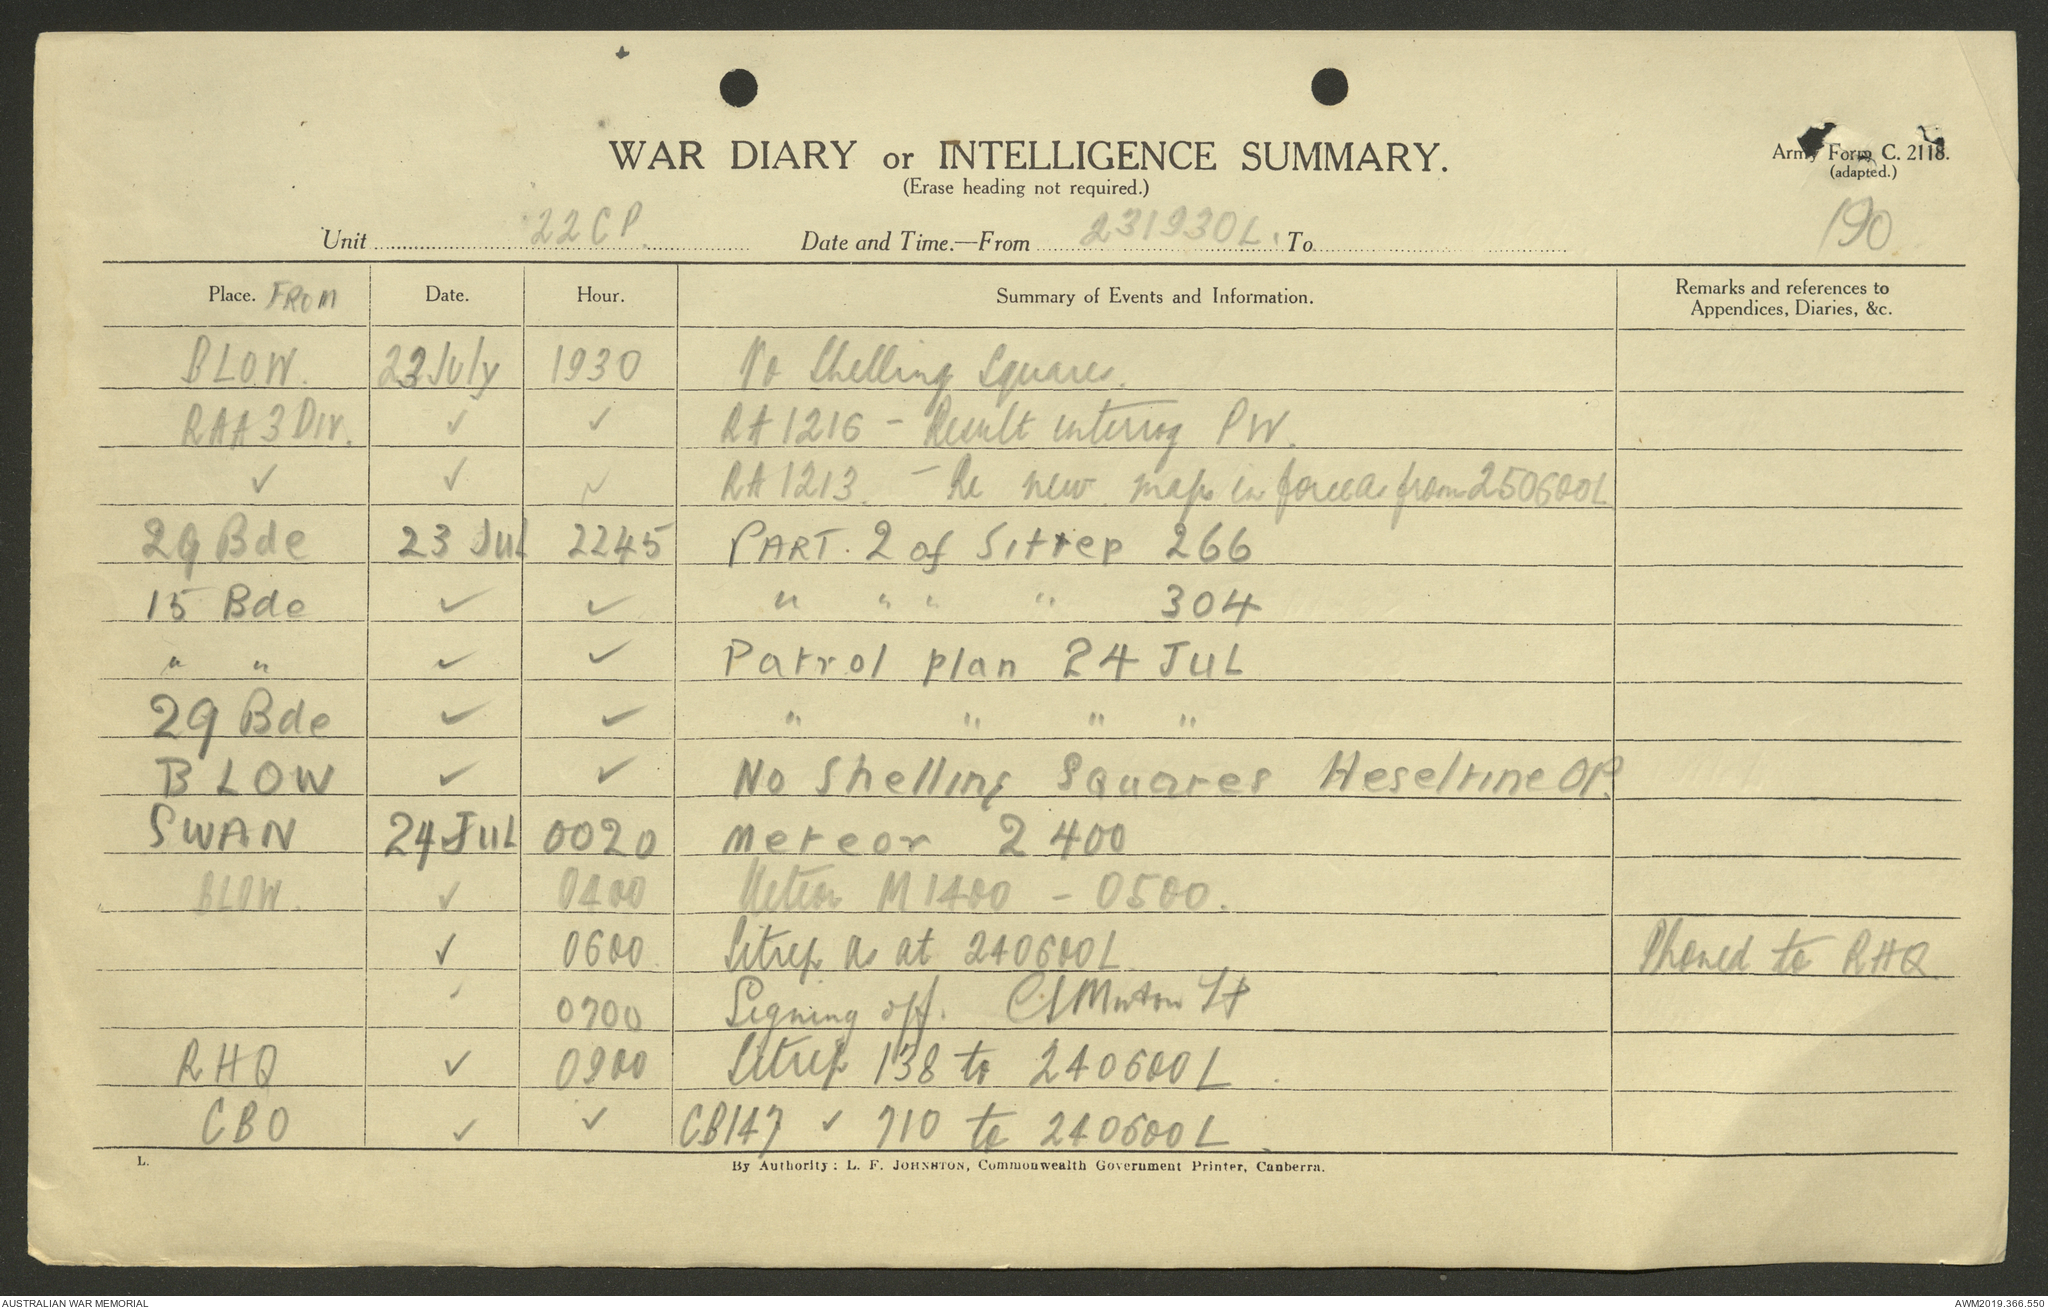 WAR DIARY or INTELLIGENCE SUMMARY.
(Erase heading not required.)
Army Form C. 2118.
(adapted.)
190
Unit 22 C P. Date and Time.—From 231930L. To
Place. FROM Date. Hour. Summary of Events and Information. Remarks and references to Appendices, Diaries, &c.
BLOW. 23 July 1930 No Shelling Squares.
RAA 3 Div. ✓ ✓ RA 1216 - Result interrog PW.
✓ ✓ ✓ RA 1213. - Re new maps in force as from 250600L
29 Bde 23 JuL 2245 PART. 2 of Sitrep 266
15 Bde ✓ ✓ " " " " 304
" " ✓ ✓ Patrol plan 24 JuL
29 Bde ✓ ✓ " " " "
BLOW ✓ ✓ No Shelling Squares Heseltine OP.
SWAN 24 JuL 0020 Meteor 2400
BLOW. ✓ 0400 Meteor M1400 - 0500.
✓ 0600 Sitrep as at 240600L Phoned to RHQ
✓ 0700 Signing off. Lt
RHQ ✓ 0900 Sitrep 138 to 240600L
CBO ✓ ✓ CB147 ✓ 710 to 240600L
L. By Authority: L. F. JOHNSTON, Commonwealth Government Printer, Canberra.
AUSTRALIAN WAR MEMORIAL AWM2019.366.550